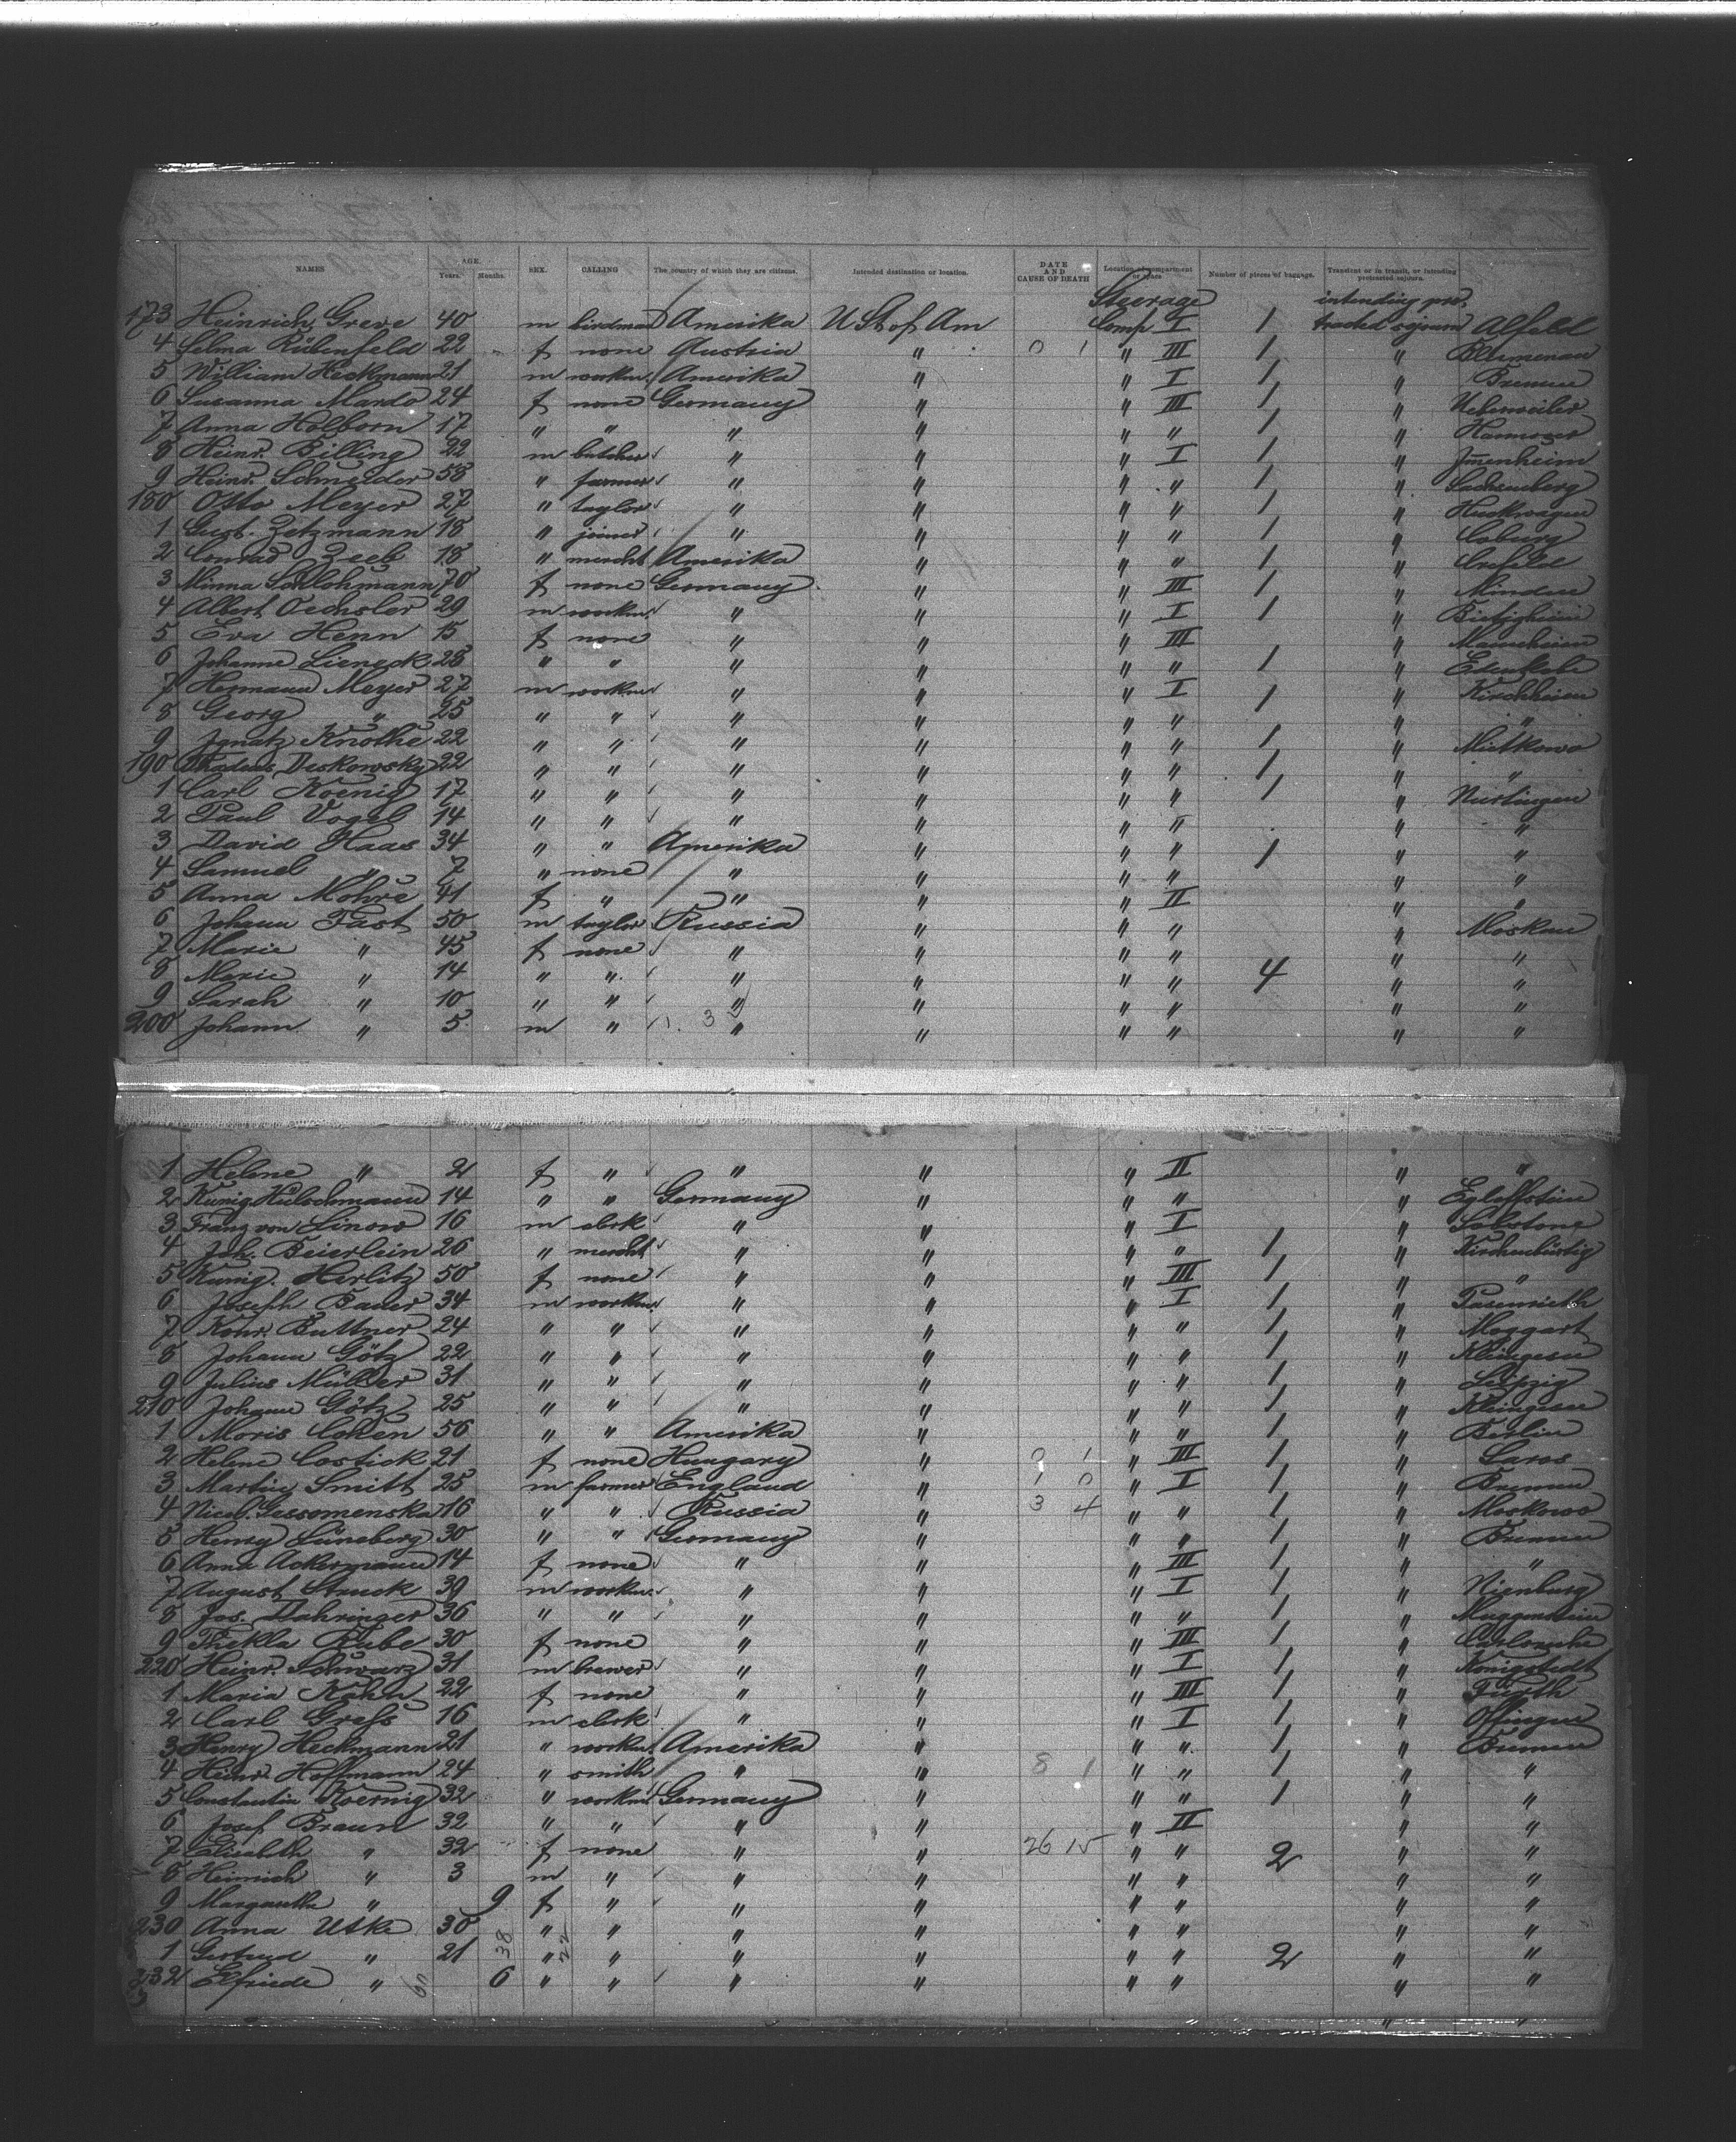 NAMES AGE. Years. Months. SEX. CALLING The country of which they are citizens. Intended destination or location. DATE AND CAUSE OF DEATH Location of compartment or space Number of pieces of baggage. Transient or in transit, or intending protracted sojourn.
Steerage intending pro-
173 Heinrich Greve 40 m birdman Amerika U St of Am Comp I 1 tracted sojourn Alfeld
4 Selma Rübenfeld 22 f none Austria " 0 1 " III 1 " Blumenau
5 William Heckmann 21 m workm. Amerika " " I 1 " Bremen
6 Susanna Mardo 24 f none Germany " " III 1 "
7 Anna Holborn 17 " " " " " " 1 " Hannover
8 Heinr. Billing 22 m butcher " " " I 1 "
9 Heinr. Schneider 58 " farmer " " " " 1 " Sachsenberg
180 Otto Meyer 27 " taylor " " " " 1 " Huckeswagen
1 Gust. Zetzmann 18 " joiner " " " " 1 " Coburg
2 Conrad Zeeb 18 " mercht Amerika " " " 1 " Crefeld
3 Minna Schlohmann 70 f none Germany " " III 1 " Minden
4 Albert Oechsler 29 m workm. " " " I 1 " Bietigheim
5 Eva Henn 15 f none " " " III " Mannheim
6 Johanne Lieneck 28 " " " " " " 1 " Edenkobe
7 Hermann Meyer 27 m workm " " " I 1 " Kirchheim
8 Georg " 25 " " " " " " " "
9 Ignatz Knothe 22 " " " " " " 1 " Mietkowo
190 Thadeus Deskowsky 22 " " " " " " 1 " "
1 Carl Koenig 17 " " " " " " 1 " Nurtingen
2 Paul Vogel 14 " " " " " " " "
3 David Haas 34 " " Amerika " " " 1 " "
4 Samuel " 7 " none " " " " " "
5 Anna Mohre 41 f " " " " II " "
6 Johann Fast 50 m taylor Russia " " " " Moskau
7 Marie " 45 f none " " " " " "
8 Marie " 14 " " " " " " 4 " "
9 Sarah " 10 " " " " " " " "
200 Johann " 5 m " " " " " " "
1 Helene " 2 f " " " " II " "
2 Kunig. Hutschmann 14 " " Germany " " " " Egloffstein
3 Franz von Linow 16 m clerk " " " I "
4 Joh. Beierlein 26 " mercht " " " " 1 "
5 Kunig. Herlitz 50 f none " " " III 1 " "
6 Joseph Bauer 34 m workm. " " " I 1 "
7 Konr. Buttner 24 " " " " " " 1 " Moggart
8 Johann Götz 22 " " " " " " 1 " Klingesee
9 Julius Müller 31 " " " " " " 1 " Leipzig
210 Johann Götz 25 " " " " " " 1 " Klingesee
1 Moris Cohen 56 " " Amerika " " " 1 " Berlin
2 Helene Costick 21 f none Hungary " 0 1 " III 1 " Saros
3 Martin Smitt 25 m farmer England " 1 0 " I 1 " Bremen
4 Nicol. Gessomenska 16 " " Russia " 3 4 " " 1 " Moskowo
5 Henry Lüneberg 30 " " Germany " " " 1 " Bremen
6 Anna Ackermann 14 f none " " " III 1 " "
7 August Struck 39 m workm. " " " I 1 " Nienburg
8 Jos. Dahringer 36 " " " " " " 1 "
9 Thekla Kube 30 f none " " " III 1 " Carlsruhe
220 Heinr. Schwarz 31 m brewer " " " I 1 " Königstedt
1 Maria Kohn 22 f none " " " III 1 " Fürth
2 Carl Greß 16 m clerk " " " I 1 " Offingen
3 Henry Heckmann 21 " workm. Amerika " " " 1 " Bremen
4 Heinr. Hoffmann 24 " smith " " 8 1 " " 1 " "
5 Constantin Koernig 32 " workm Germany " " " 1 " "
6 Josef Braun 32 " " " " " II " "
7 Elisabeth " 32 f none " " 26 15 " " 2 " "
8 Heinrich " 3 m " " " " " " "
9 Margarethe " 9 f " " " " " " "
230 Anna Utke 30 " " " " " " " "
1 Gertrud " 21 38 " 22 " " " " " 2 " "
232 Elfriede " 60 6 " " " " " " " "